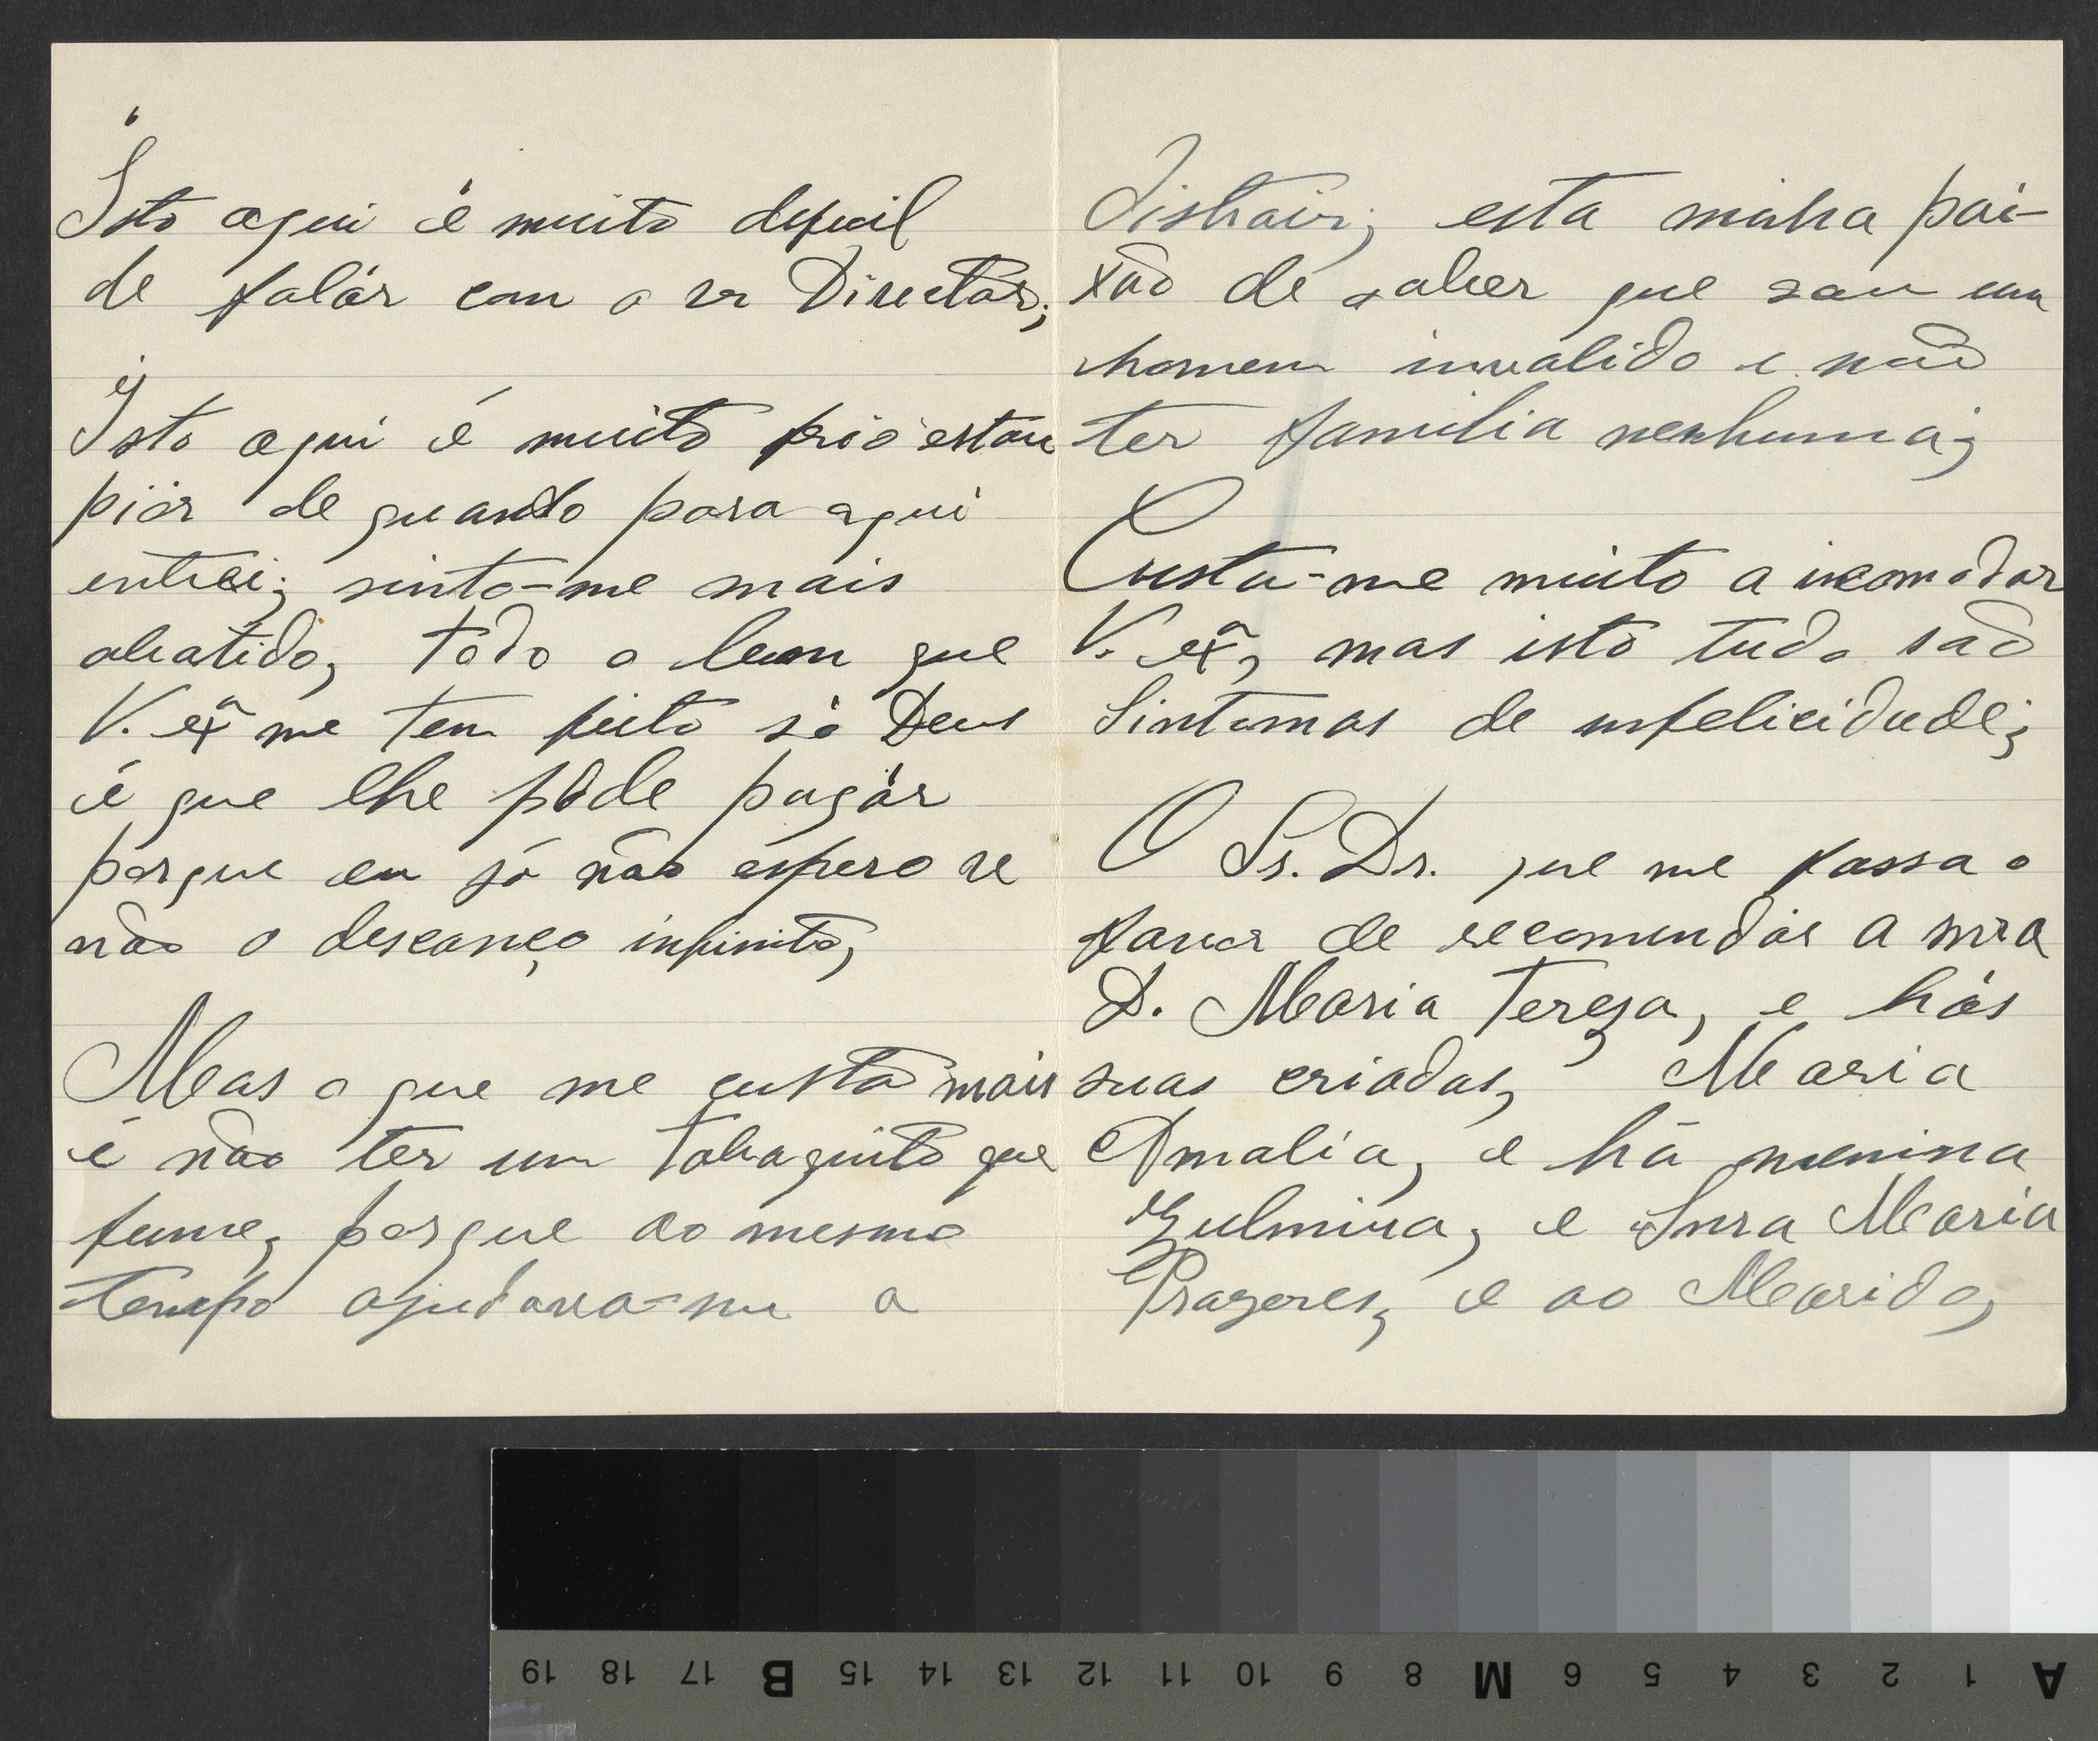 Isto aqui é muito deficil
de falár com o sr Directôr;
Isto aqui é muito frio estou
piór de quando para aqui
entrei; sinto-me mais
abatido, todo o bem que
V. exª me tem feito só Deus
é que lhe póde pagár
porque eu já não espero se
não o descanço infinito,
Mas o que me custa mais
é não ter um tabaquito que
fume, porque ao mesmo
tempo ajudava-me a
distrair; esta minha pai-
xão de saber que sou um
homem invalido e não
ter familia nenhuma;
Custa-me muito a incomodar
V. exª, mas isto tudo são
Sintomas de infelicidade;
O Sr. Dr. que me fassa o
favor de recomendár a snra
D. Maria Tereza, e hás
suas criadas, Maria
Amalia, e há menina
Zulmira, e Snra Maria
Prazeres, e ao Marido,
19 18 17 B 15 14 13 12 11 10 9 8 M 6 5 4 3 2 1 A